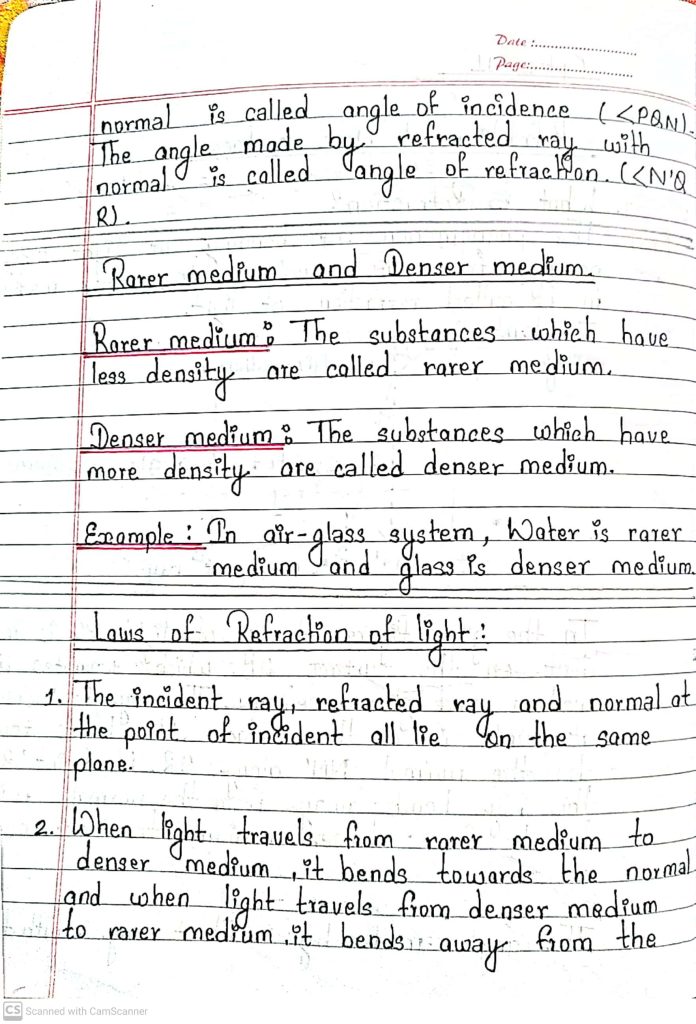 Date :
Page:
normal is called angle of incidence (<PQN).
The angle made by refracted ray with
normal is called angle of refraction. (<N'Q
R).
Rarer medium and Denser medium.
Rarer medium : The substances which have
less density are called rarer medium.
Denser medium : The substances which have
more density are called denser medium.
Example : In air-glass system, Water is rarer
medium and glass is denser medium.
Laws of Refraction of light :
1. The incident ray, refracted ray and normal at
the point of incident all lie on the same
plane.
2. When light travels from rarer medium to
denser medium, it bends towards the normal
and when light travels from denser medium
to rarer medium, it bends away from the
CS Scanned with CamScanner